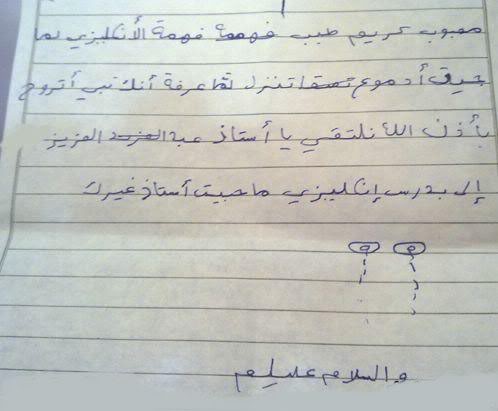 محبوب كريم طيب فهمة فهمة الأنكليزي لما
أدموع تنزل لما عرفة أنك نبي أتروح
بأذن اللة نلتقي يا أستاذ عبد العزيز العزيز
إلى بدرس إنكليزي ما حبيت أستاذ غيرك
والسلام عليكم